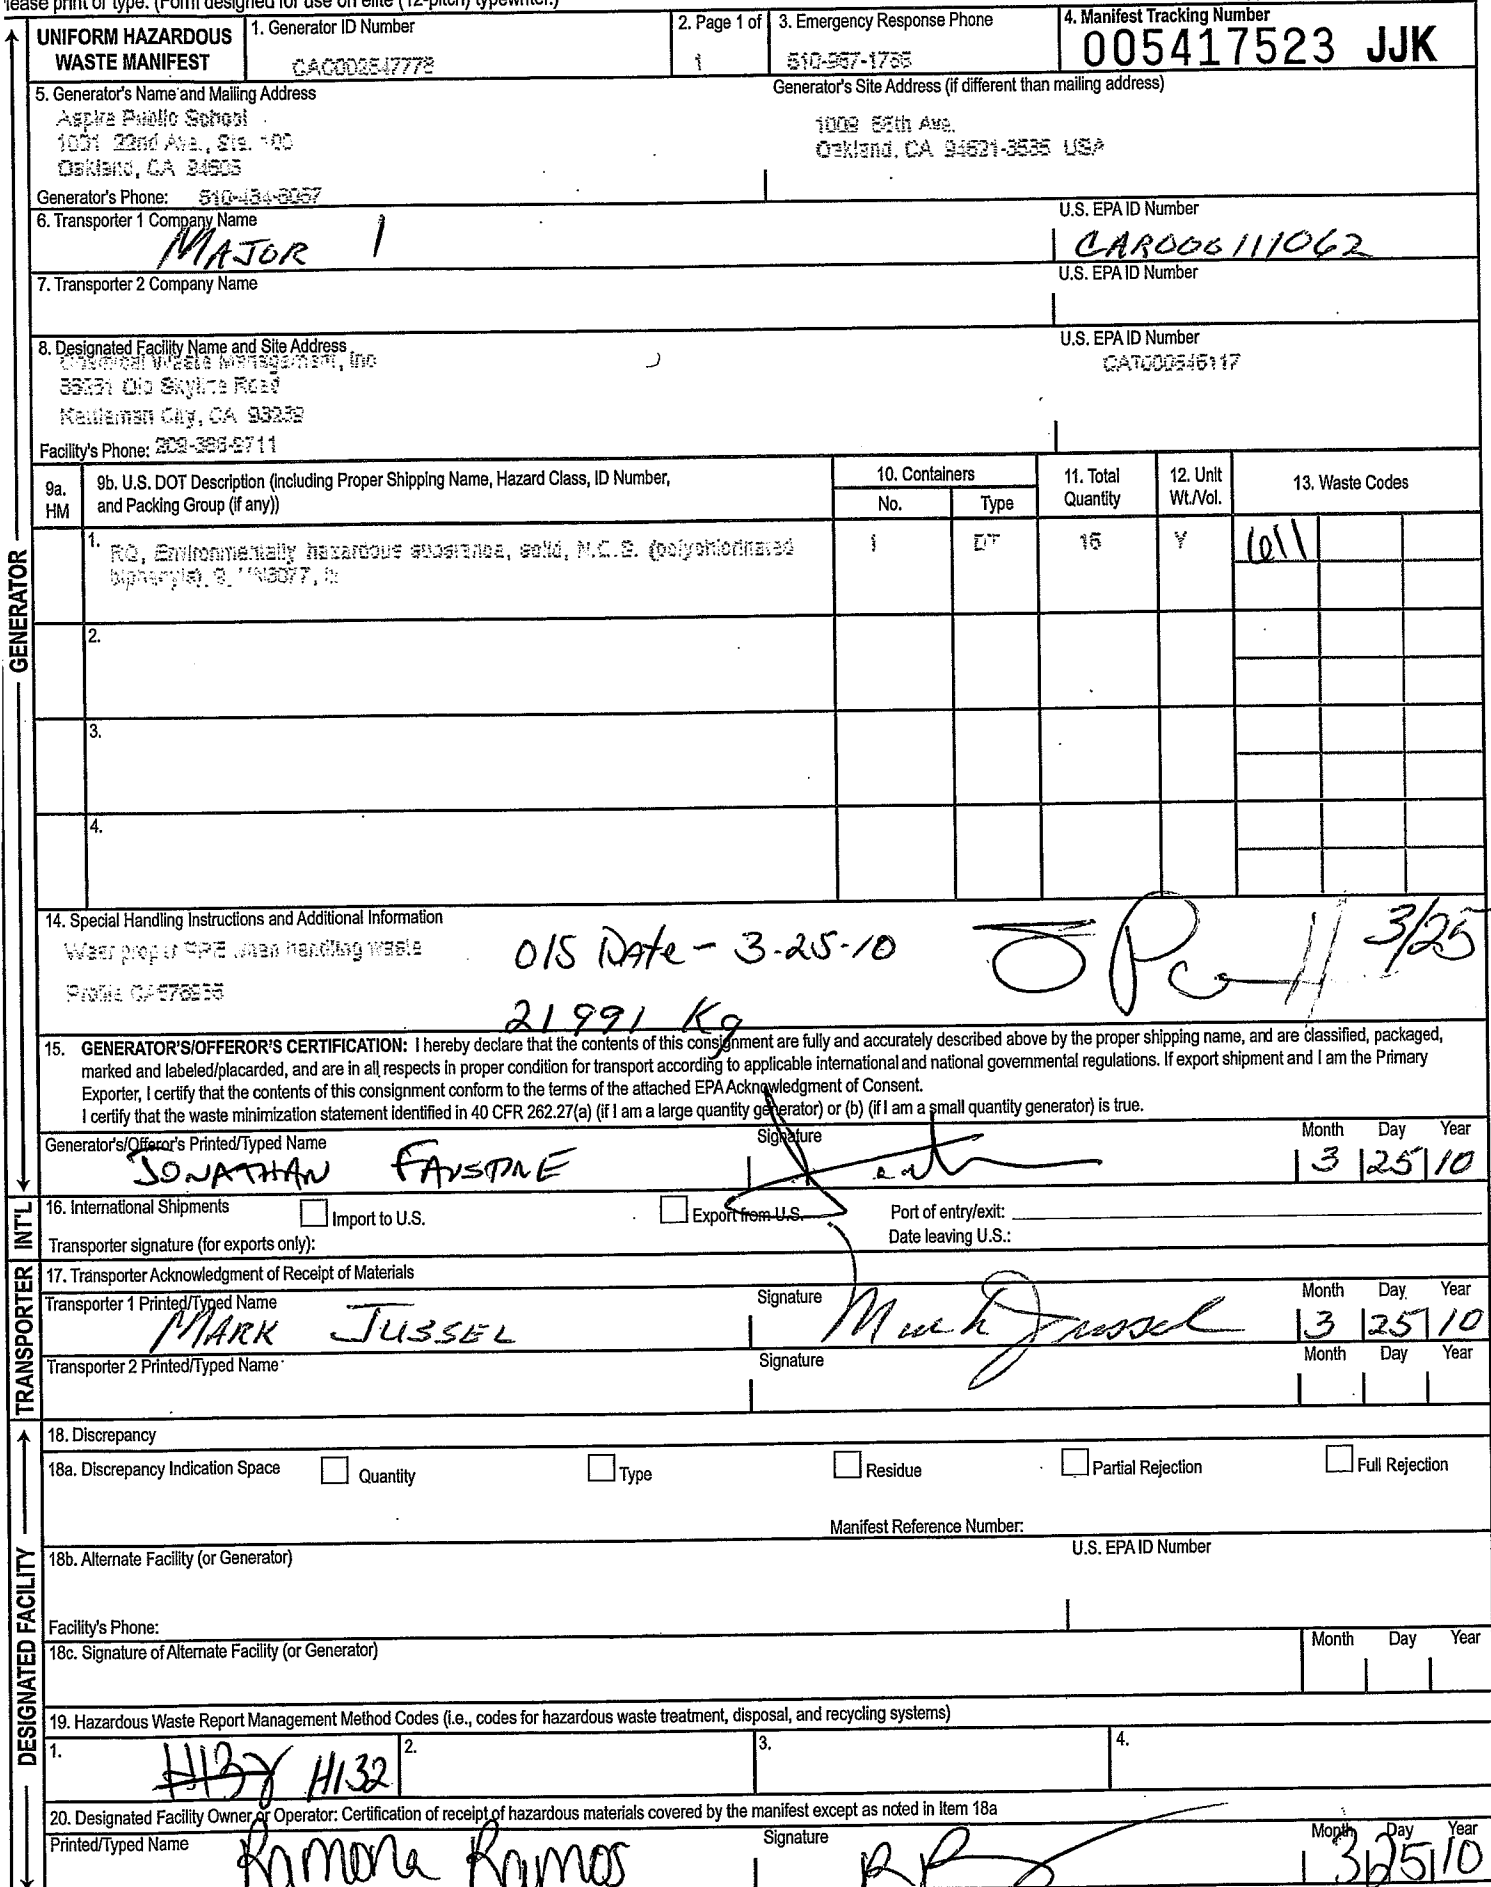 Please print or type. (Form designed for use on elite (12-pitch) typewriter.)
UNIFORM HAZARDOUS WASTE MANIFEST
1. Generator ID Number
2. Page 1 of
3. Emergency Response Phone
4. Manifest Tracking Number
1
005417523 JJK
5. Generator's Name and Mailing Address
Generator's Site Address (if different than mailing address)
Aspire Public School
1001 22nd Ave., Ste. 100
Oakland, CA
Ave.
Oakland, CA 94621-3535 USA
Generator's Phone:
6. Transporter 1 Company Name
U.S. EPA ID Number
MAJOR 1
CAR000111062
7. Transporter 2 Company Name
U.S. EPA ID Number
8. Designated Facility Name and Site Address
U.S. EPA ID Number
Chemical Waste Management, Inc
CAT000646117
Old Skyline Road
Kettleman City, CA 93239
Facility's Phone:
9a. HM
9b. U.S. DOT Description (including Proper Shipping Name, Hazard Class, ID Number, and Packing Group (if any))
10. Containers
No.
Type
11. Total Quantity
12. Unit Wt./Vol.
13. Waste Codes
1. RQ, Environmentally hazardous substance, solid, N.O.S. (polychlorinated
biphenyls), 9, UN3077, III
1
DT
Y
611
2.
3.
4.
14. Special Handling Instructions and Additional Information
Wear proper PPE when handling waste
Profile
O/S Date - 3-25-10
3/25
21991 Kg
15. GENERATOR'S/OFFEROR'S CERTIFICATION: I hereby declare that the contents of this consignment are fully and accurately described above by the proper shipping name, and are classified, packaged,
marked and labeled/placarded, and are in all respects in proper condition for transport according to applicable international and national governmental regulations. If export shipment and I am the Primary
Exporter, I certify that the contents of this consignment conform to the terms of the attached EPA Acknowledgment of Consent.
I certify that the waste minimization statement identified in 40 CFR 262.27(a) (if I am a large quantity generator) or (b) (if I am a small quantity generator) is true.
Generator's/Offeror's Printed/Typed Name
Signature
Month Day Year
JONATHAN FAUSTINE
3 25 10
16. International Shipments
Import to U.S.
Export from U.S.
Port of entry/exit:
Transporter signature (for exports only):
Date leaving U.S.:
17. Transporter Acknowledgment of Receipt of Materials
Transporter 1 Printed/Typed Name
Signature
Month Day Year
MARK JUSSEL
Mark Jussel
3 25 10
Transporter 2 Printed/Typed Name
Signature
Month Day Year
18. Discrepancy
18a. Discrepancy Indication Space
Quantity
Type
Residue
Partial Rejection
Full Rejection
Manifest Reference Number:
18b. Alternate Facility (or Generator)
U.S. EPA ID Number
Facility's Phone:
18c. Signature of Alternate Facility (or Generator)
Month Day Year
19. Hazardous Waste Report Management Method Codes (i.e., codes for hazardous waste treatment, disposal, and recycling systems)
1.
H132
2.
3.
4.
20. Designated Facility Owner or Operator: Certification of receipt of hazardous materials covered by the manifest except as noted in Item 18a
Printed/Typed Name
Signature
Month Day Year
Ramona Ramos
3 25 10
GENERATOR
INT'L
TRANSPORTER
DESIGNATED FACILITY